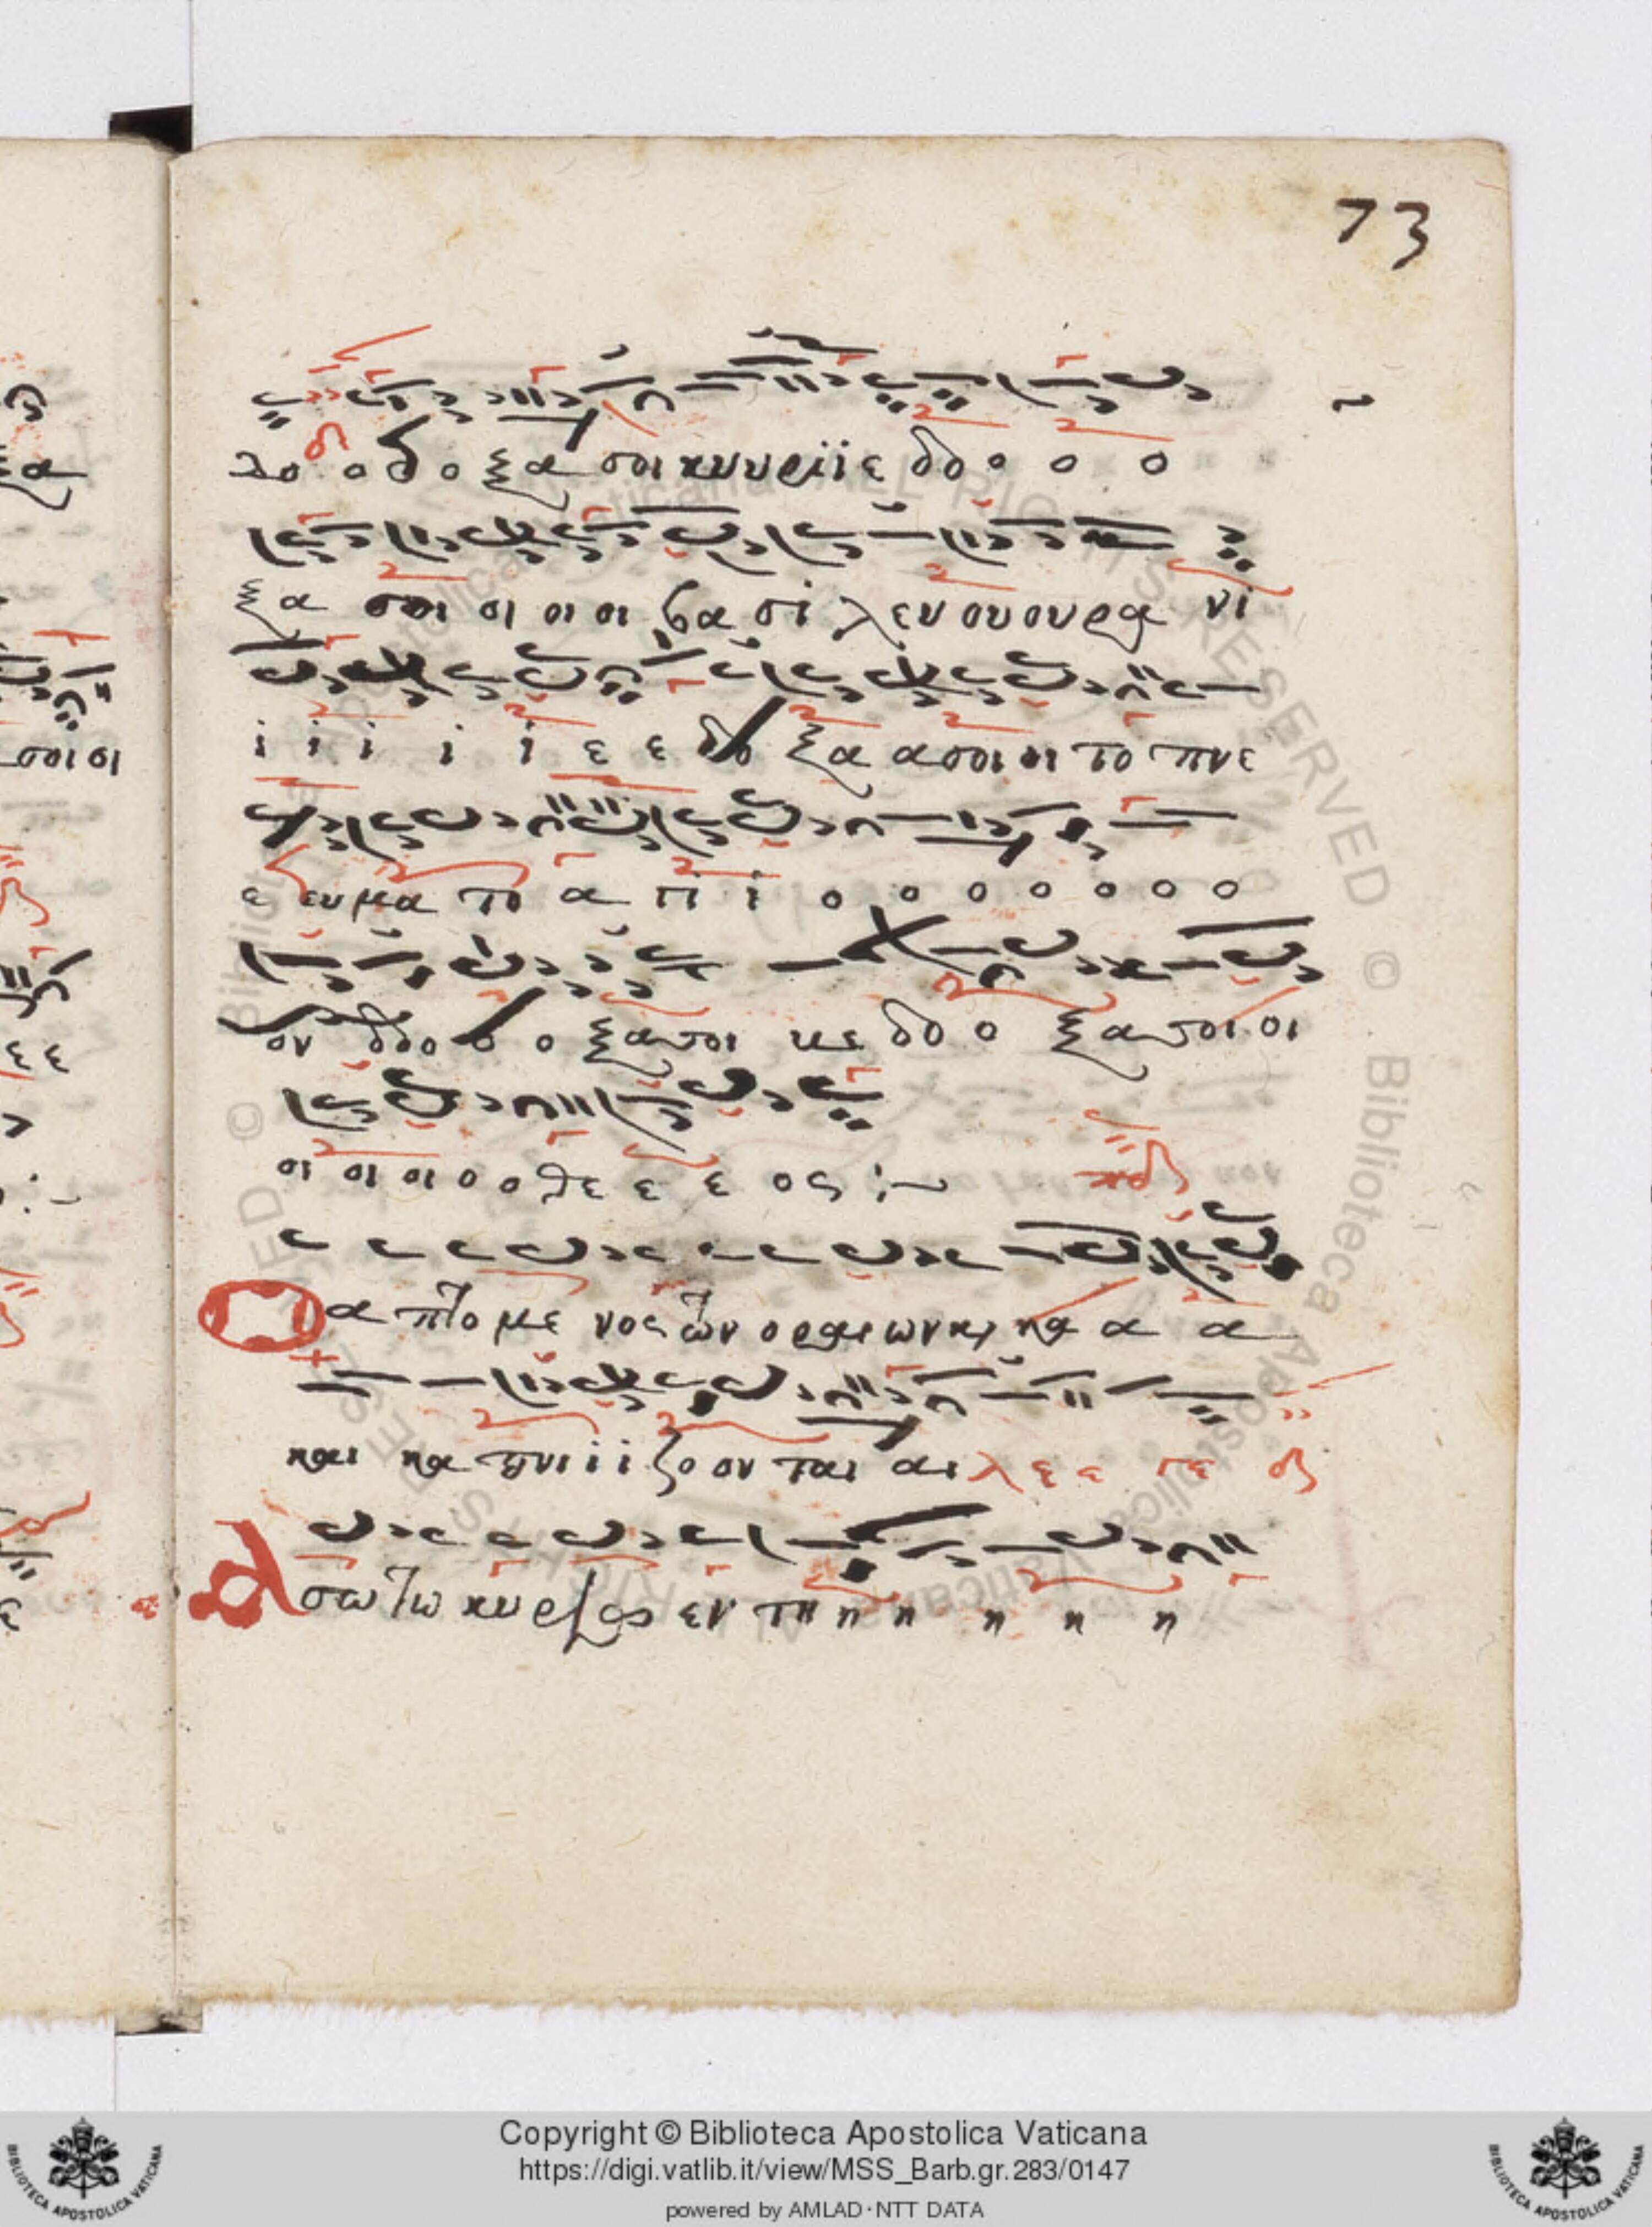 73
δο ο δο ο ξα σοι κυυριιε δο ο ο ο
ξα σοι οι οι οι βα σι λευ ου ουρα νι
ι ι ι ι ι ε ε δο ξα α σοι οι το πνε
ε ευμα το α γι ι ο ο ο ο ο ο ο
ον δο ο ο ξα σοι κε δο ο ξα σοι οι
οι οι οι ο ο θε ε ε ος :~
Ο απτομε νος των ορεων και κα α α
και κα πνιιι ζο ον ται αι λε ε γε
Α σω τω κυ εν τη η η η η η
Copyright © Biblioteca Apostolica Vaticana
https://digi.vatlib.it/view/MSS_Barb.gr.283/0147
powered by AMLAD·NTT DATA